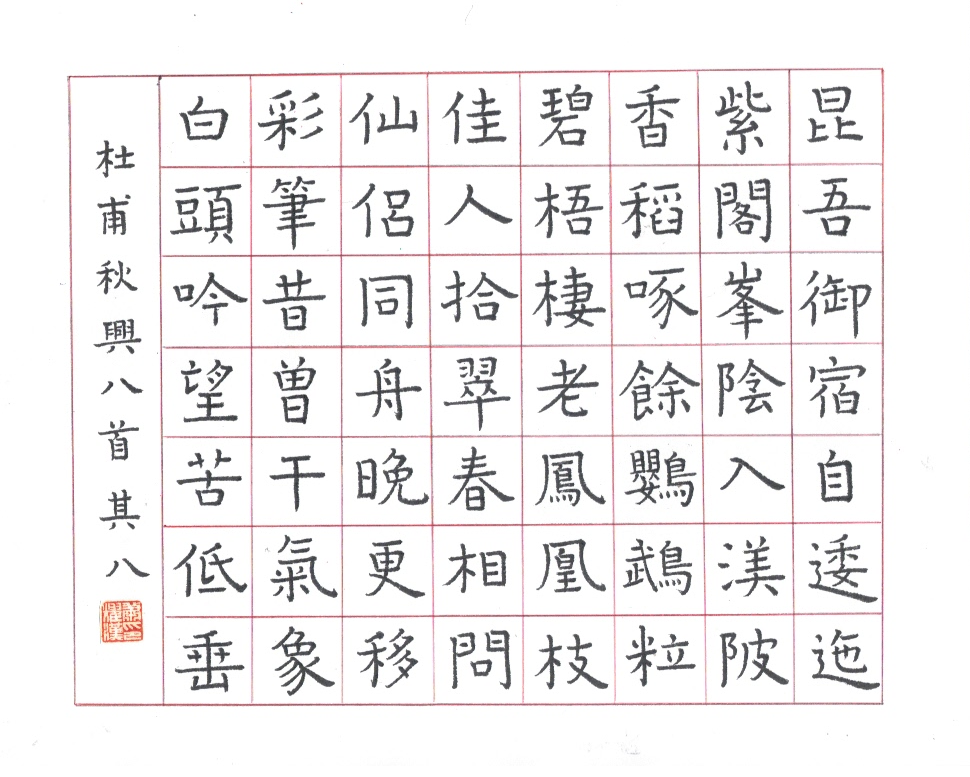 昆吾御宿自逶迤
紫閣峯陰入渼陂
香稻啄餘鸚鵡粒
碧梧棲老鳳凰枝
佳人拾翠春相問
仙侶同舟晚更移
彩筆昔曾干氣象
白頭吟望苦低垂
杜甫秋興八首其八